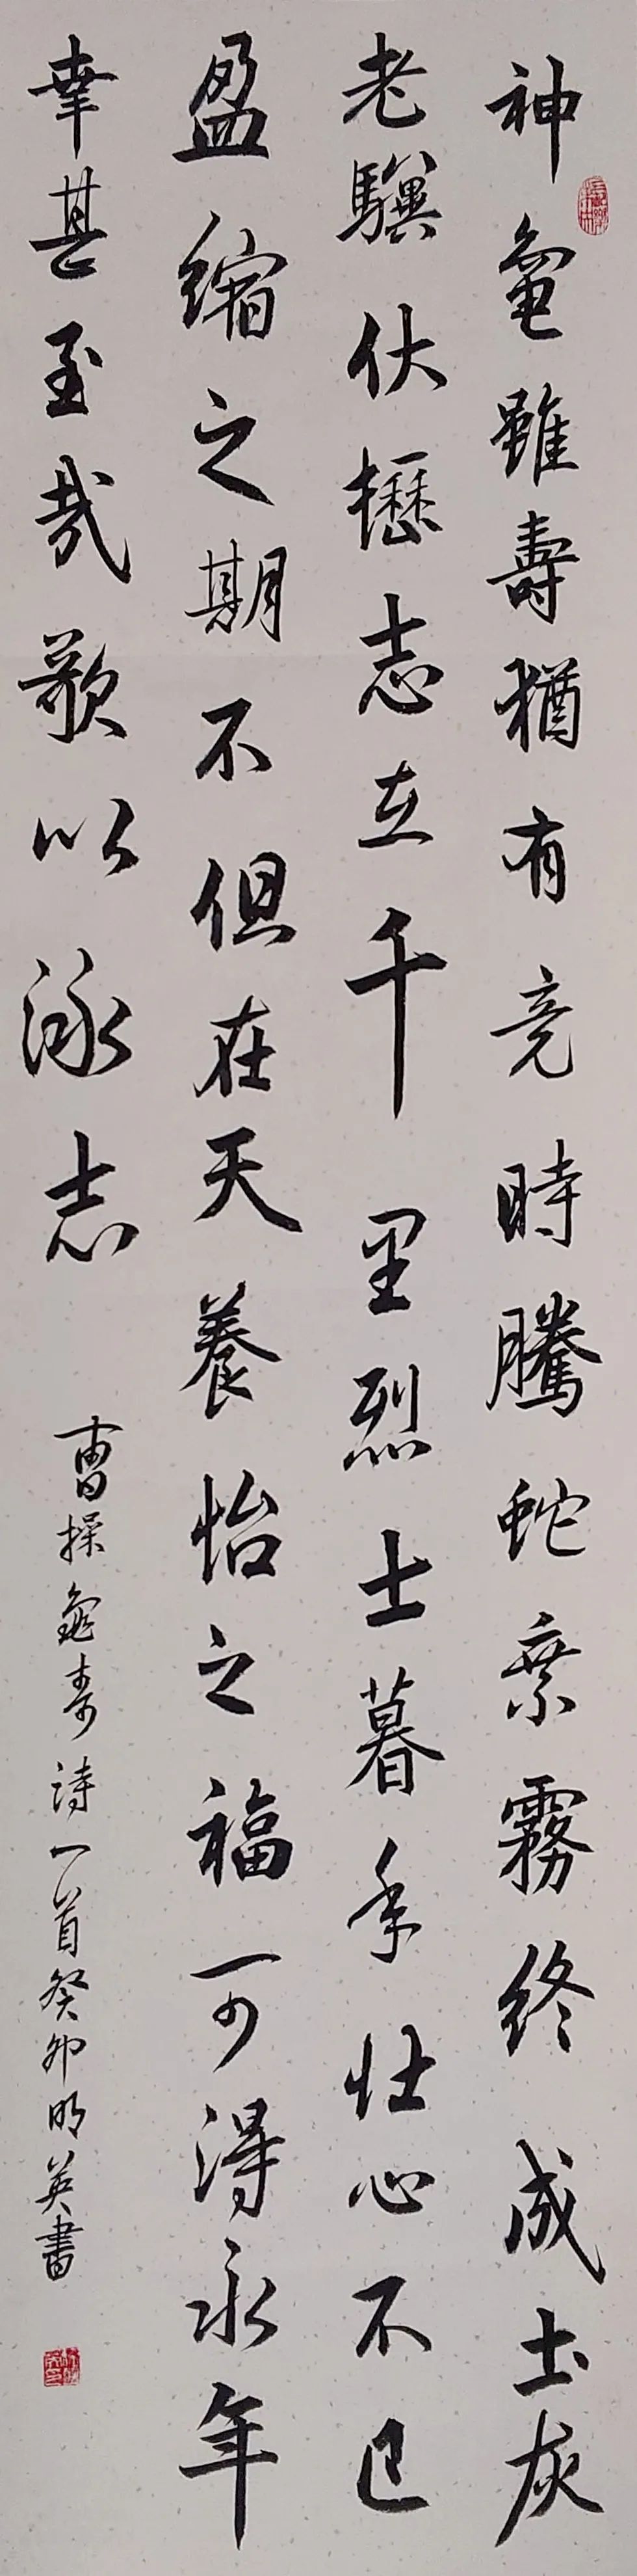 神龜雖壽猶有竟時騰蛇乘霧終成土灰
老驥伏櫪志立千里烈士暮年壯心不已
盈縮之期不但在天養怡之福可得永年
幸甚至哉歌以詠志
曹操龜壽詩一首癸卯明英書